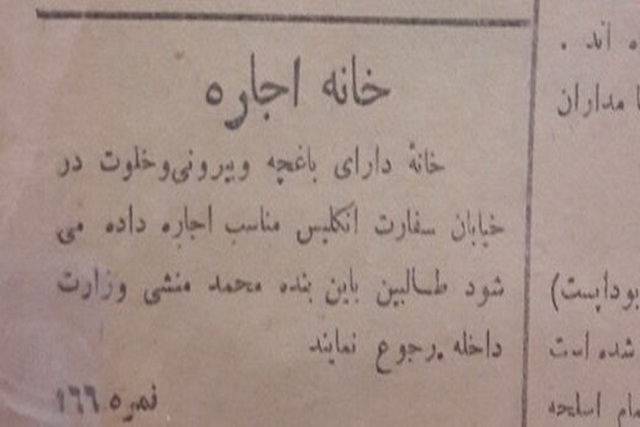 خانه اجاره
خانهٔ دارای باغچه و بیرونی و خلوت در
خیابان سفارت انگلیس مناسب اجاره داده می
شود طالبین باین بنده محمد منشی وزارت
داخله .رجوع نمایند
نمره ۱۶۶
ه اند .
مداران
بوداپست)
شده است
اسلحه